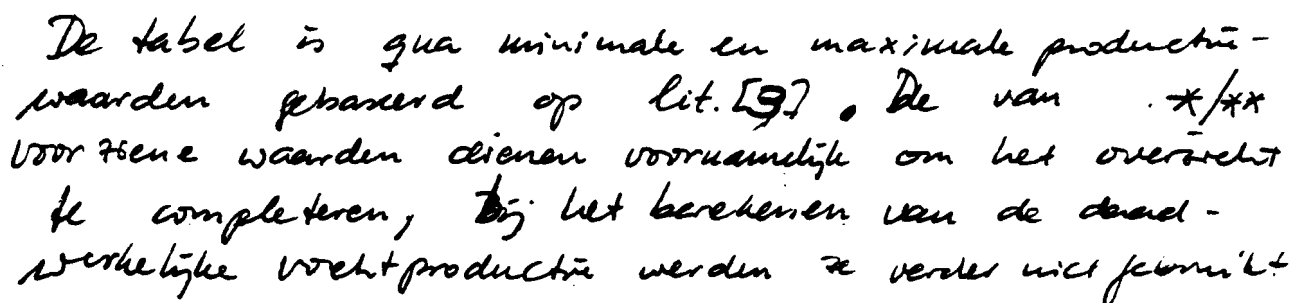 De tabel is qua minimale en maximale productie-
waarden gebaseerd op lit.[3]. De van */**
voorziene waarden dienen voornamelijk om het overzicht
te completeren, bij het berekenen van de daad-
werkelijke vochtproductie werden ze verder niet gebruikt